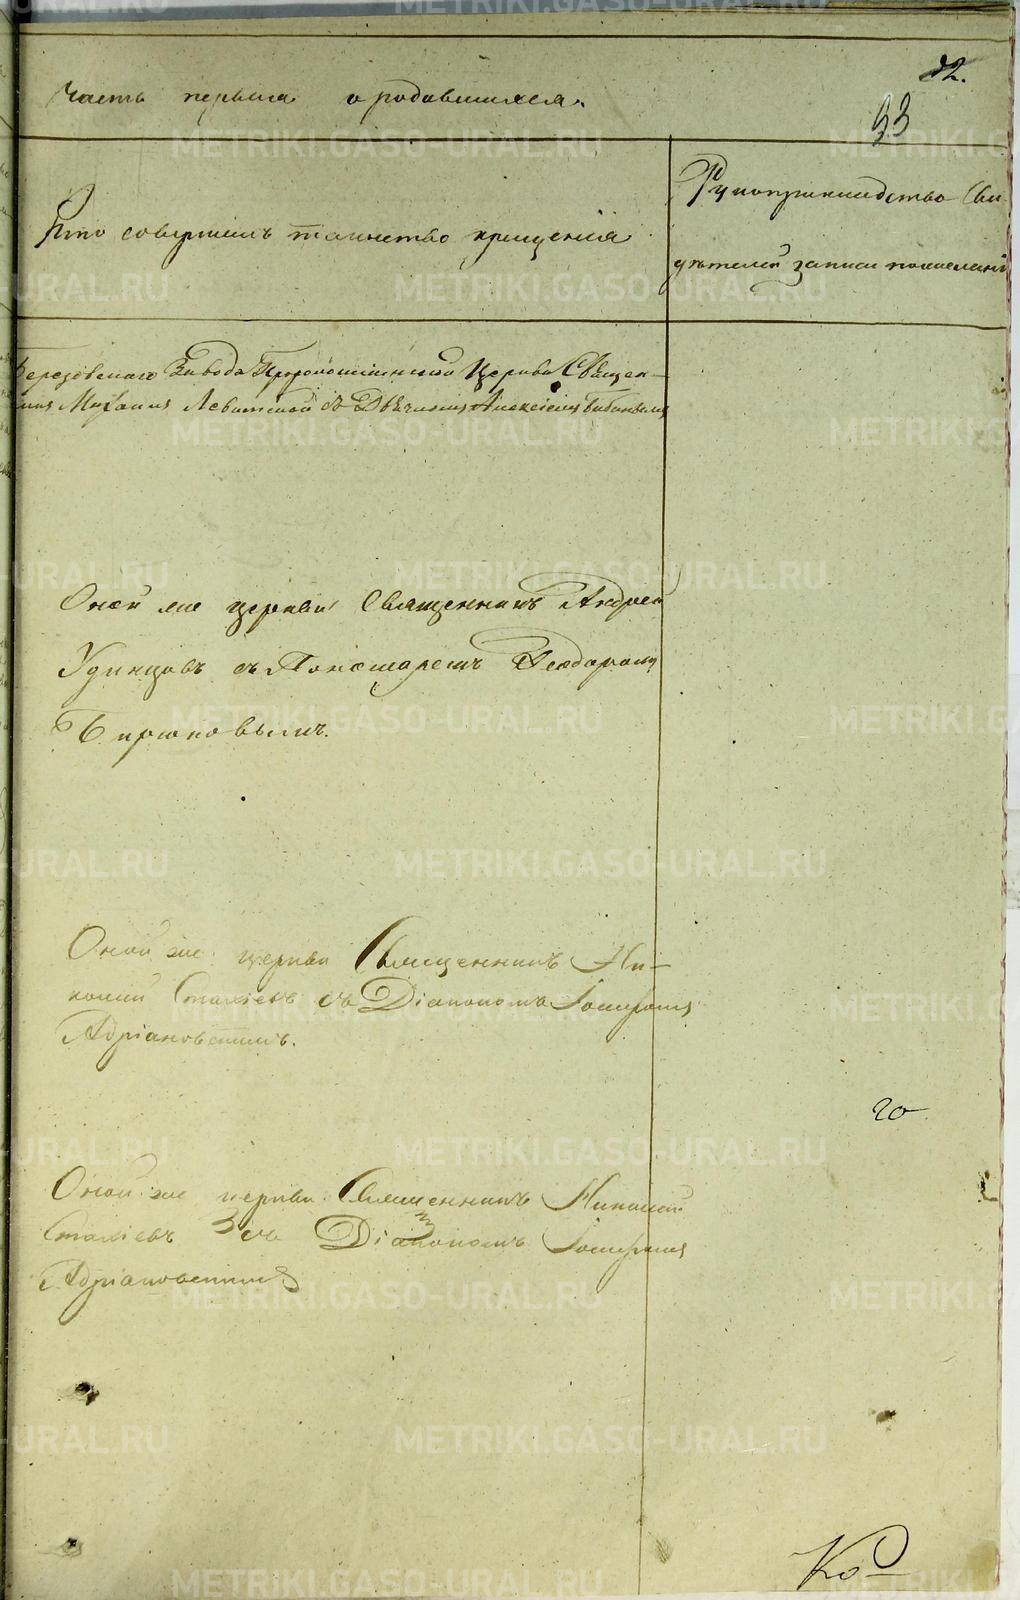 32.
Часть первая о родившихся.
33
Кто совершилъ таинство крещенія
Рукоприкладство Сви-
дѣтелей записи по желанію
Березовскаго Завода Пророкоильинской Церкви Священ-
никъ Михаилъ Левитской съ Дьячкомъ Алексѣемъ
Оной же церкви Священникъ Андрей
Удинцовъ съ Пономаремъ Феодоромъ
Бирюковымъ.
Оной же церкви Священникъ Ни-
колай Стахіевъ съ Діакономъ Іосифомъ
Адріановскимъ.
20
Оной же церкви Священникъ Николай
Стахіевъ съ Діакономъ Іосифомъ
Адріановскимъ
Ко
METRIKI.GASO-URAL.RU